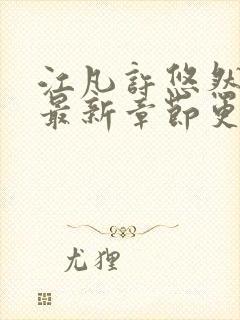 江凡许悠然
最新章节更
尤狸